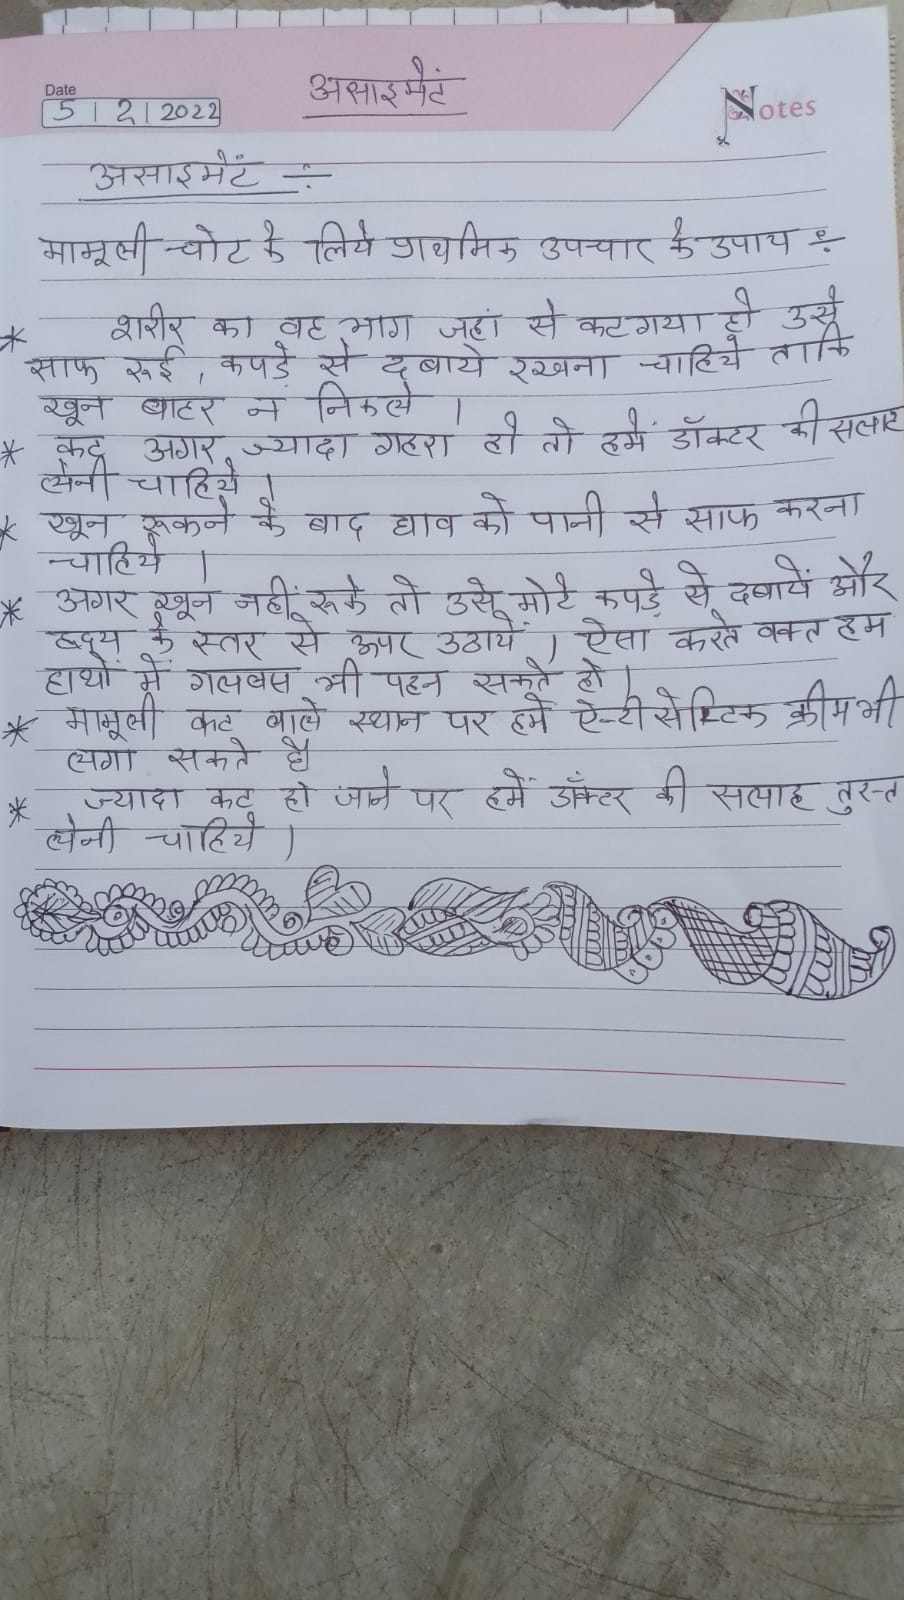 असाइमैटं
Date
5 | 2 | 2022
Notes
असाइमैटं ÷
मामूली चोट के लिये प्राथमिक उपचार के उपाय ÷
* शरीर का वह भाग जहां से कटगया हो उसे
साफ रूई, कपड़े से दबाये रखना चाहिये ताकि
खून बाहर न निकले ।
* कट अगर ज्यादा गहरा हो तो हमें डॉक्टर की सलाह
लेनी चाहिये ।
* खून रूकने के बाद घाव को पानी से साफ करना
चाहिये ।
* अगर खून नहीं रूके तो उसे मोटे कपड़े से दबायें और
ह्रदय के स्तर से ऊपर उठायें । ऐसा करते वक्त हम
हाथों में गलवस भी पहन सकते हो ।
* मामूली कट वाले स्थान पर हमें ऐन्टी सेप्टिक क्रीम भी
लगा सकते है
* ज्यादा कट हो जाने पर हमें डॉक्टर की सलाह तुरन्त
लेनी चाहिये ।